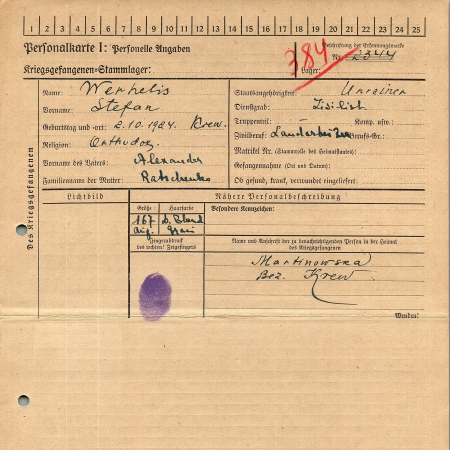 1 2 3 4 5 6 7 8 9 10 11 12 13 14 15 16 17 18 19 20 21 22 23 24 25
Personalkarte I: Personelle Angaben
Kriegsgefangenen-Stammlager:
Beschriftung der Erkennungsmarke
Nr. 2344
384
Lager:
Des Kriegsgefangenen
Name: Werhelis
Vorname: Stefan
Geburtstag und -ort: 2.10.1924 Krew.
Religion: Orthodox
Vorname des Vaters: Alexander
Familienname der Mutter: Ratschenko
Staatsangehörigkeit: Ukrainer
Dienstgrad: Zivilist
Truppenteil: Komp. usw.:
Zivilberuf: Landarbeiter Berufs-Gr.:
Matrikel Nr. (Stammrolle des Heimatstaates):
Gefangennahme (Ort und Datum):
Ob gesund, krank, verwundet eingeliefert:
Lichtbild
Nähere Personalbeschreibung
Größe Haarfarbe
167 d. Blond
Besondere Kennzeichen:
Fingerabdruck
des rechten! Zeigefingers
Name und Anschrift der zu benachrichtigenden Person in der Heimat
des Kriegsgefangenen
Martinowska
Bez. Krew
Wenden!